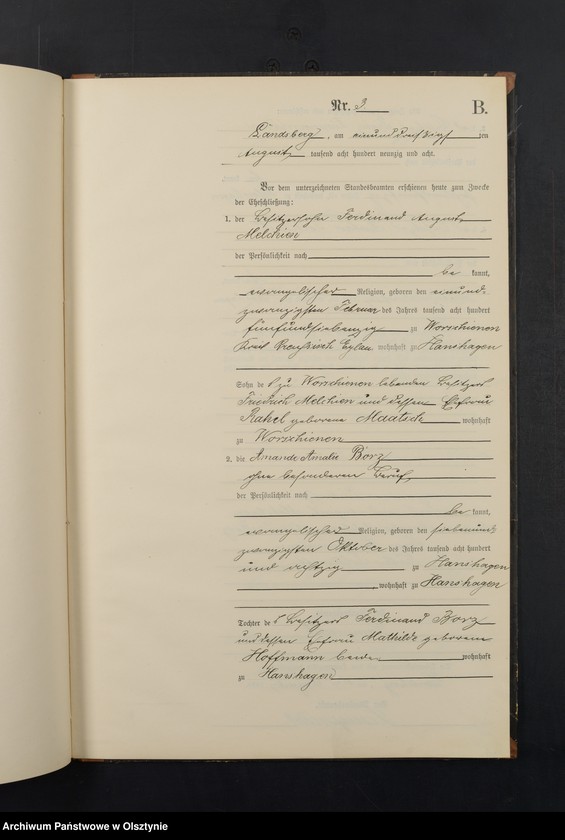 Nr. 9. B.
Landsberg, am einunddreißigsten
August tausend acht hundert neunzig und acht.
Vor dem unterzeichneten Standesbeamten erschienen heute zum Zwecke
der Eheschließung:
1. der Besitzersohn Ferdinand August
Melchien
der Persönlichkeit nach
be kannt,
evangelischer Religion, geboren den einund-
zwanzigsten Februar des Jahres tausend acht hundert
fünfundsiebenzig zu Worschienen
Kreis Preußisch Eylau wohnhaft zu Hanshagen
Sohn des zu Worschienen lebenden Besitzers
Friedrich Melchien und dessen Ehefrau
Rahel geborene wohnhaft
zu Worschienen
2. die Amande Amalie Borz
ohne besonderen Beruf
der Persönlichkeit nach
be kannt,
evangelischer Religion, geboren den siebenund-
zwanzigsten Oktober des Jahres tausend acht hundert
und achtzig zu Hanshagen
wohnhaft zu Hanshagen
Tochter des Besitzers Ferdinand Borz
und dessen Ehefrau Mathilde geborene
Hoffmann beide wohnhaft
zu Hanshagen
Archiwum Państwowe w Olsztynie